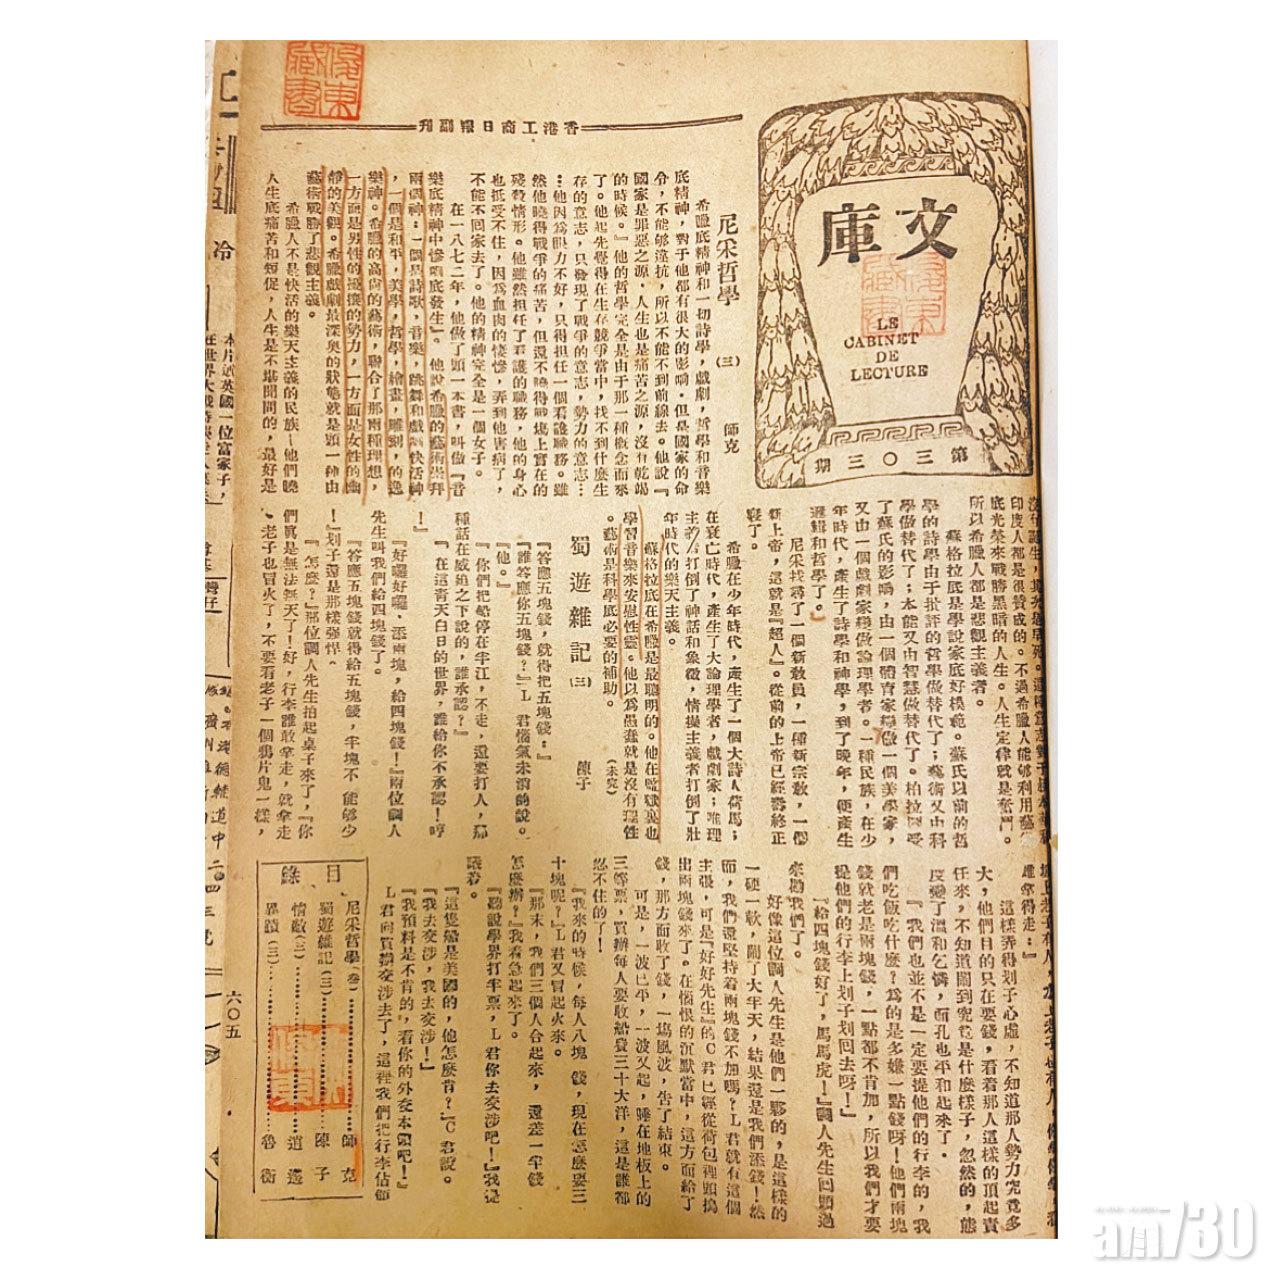 香港工商日報副刊
文庫
LE
CABINET
DE
LECTURE
第三〇三期
尼采哲學 (三) 師克
希臘底精神和一切詩學,戲劇,哲學和音樂
底精神,對于他都有很大的影响。但是國家的命
令,不能够違抗,所以不能不到前線去。他說『
國家是罪惡之源,人生也是痛苦之源,沒有乾竭
的時候。』他的哲學完全是由于那一種概念而來
了。他起先覺得在生存競爭當中,找不到什麼生
存的意志,只發現了戰爭的意志,勢力的意志…
…他因為眼力不好,只得担任一個看護職務。雖
然他曉得戰爭的痛苦,但還不曉得戰場上實在的
殘殺情形。他雖然担任了看護的職務,他的身心
也抵受不住,因為血肉的悽慘,弄到他害病了,
不能不回家去了。他的精神完全是一個女子。
在一八七二年,他做了頭一本書,叫做『音
樂底精神中慘唱底發生』。他說希臘的藝術崇拜
兩個神:一個是詩歌,音樂,跳舞和戲劇快活神
,一個是和平,美學,哲學,繪畫,雕刻,的逸
樂神。希臘的高尚的藝術,聯合了那兩種理想,
一方面是男性的擾攘的勢力,一方面是女性的幽
靜的美觀。希臘戲劇最深奧的狀態就是頭一種由
藝術戰勝了悲觀主義。
希臘人不是快活的樂天主義的民族—他們曉
人生底痛苦和短促,人生是不堪聞問的,最好是
印度人都是很贊成的。不過希臘人能够利用藝術
底光榮來戰勝黑暗的人生。人生定律就是奮鬥。
所以希臘人都是悲觀主義者。
蘇格拉底是學說家底好模範。蘇氏以前的哲
學的詩學由于批評的哲學做替代了;藝術又由科
學做替代了;本能又由智慧做替代了。柏拉圖受
了蘇氏的影响,由一個體育家變做一個美學家,
又由一個戲劇家變做論理學者。一種民族,在少
年時代,產生了詩學和神學,到了晚年,便產生
邏輯和哲學了。
尼采找尋了一個新教員,一種新宗教,一個
新上帝,這就是『超人』。從前的上帝已經壽終正
寢了。
希臘在少年時代,產生了一個大詩人荷馬;
在衰亡時代,產生了大論理學者,戲劇家;唯理
主義者打倒了神話和象徵,情操主義者打倒了壯
年時代的樂天主義。
蘇格拉底在希臘是最聰明的。他在監獄裏也
學習音樂來安慰性靈。他以為愚蠢就是沒有理性
。藝術是科學底必要的補助。 (未完)
蜀遊雜記 (三) 陳子
『答應五塊錢,就得把五塊錢:』
『誰答應你五塊錢?』L君惱氣未消的說。
『他。』
『你們把船停在半江,不走,還要打人,那
種話在威迫之下說的,誰承認?』
『在這青天白日的世界,誰給你不承認!哼
!』
『好囉好囉,添兩塊,給四塊錢!』兩位調人
先生叫我們給四塊錢了。
『答應五塊錢就得給五塊錢,半塊不能够少
!』划子還是那樣強悍。
『怎麼?』那位調人先生拍起桌子來了,『你
們眞是無法無天了!好,行李誰敢拿走,就拿走
。老子也冒火了,不要看老子一個鴉片鬼一樣,
誰拿得走:』
這樣弄得划子心虛,不知道那人勢力究竟多
大,他們目的只在要錢,看着那人這樣的頂起責
任來,不知道鬧到究竟是什麼樣子,忽然的,態
度變了溫和乞憐,面孔也平和起來了。
『我們也並不是一定要提他們的行李的,我
們吃飯吃什麼?為的是多嫌一點錢呀!他們兩塊
錢就老是兩塊錢,一點都不肯加,所以我們才要
提他們的行李上划子划回去呀!』
『給四塊錢好了,馬馬虎!』調人先生回頭過
來勸我們了。
好像這位調人先生是他們一夥的,是這樣的
一硬一軟,鬧了大半天,結果還是我們添錢!然
而,我們還堅持着兩塊錢不加嗎?L君就有這個
主張,可是『好好先生』的C君已經從荷包裡頭摸
出兩塊錢來了。在惱恨的沉默當中,這方面給了
錢,那方面收了錢,一塲風波,告了結束。
可是,一波已平,一波又起,睡在地板上的
三等票,買辦每人要收船費三十大洋,這是誰都
忍不住的了!
『我來的時候,每人八塊錢,現在怎麼要三
十塊呢?』L君又冒起火來。
『那末,我們三個人合起來,還差一半錢
怎麼辦?』我着急起來了。
『聽說學界打半票,L君你去交涉吧!』我提
議着。
『這隻船是美國的,他怎麼肯?』C君說。
『我去交涉,我去交涉!』
『我預料是不肯的,看你的外交本領吧!』
L君向買辦交涉去了,這裡我們把行李佔領
目錄
尼采哲學(三)……師克
蜀遊雜記(三)……陳子
情敵(三)……逍遙
異蹟(三)……魯衡
六〇五
冷
本片述英國一位富家子,
am730